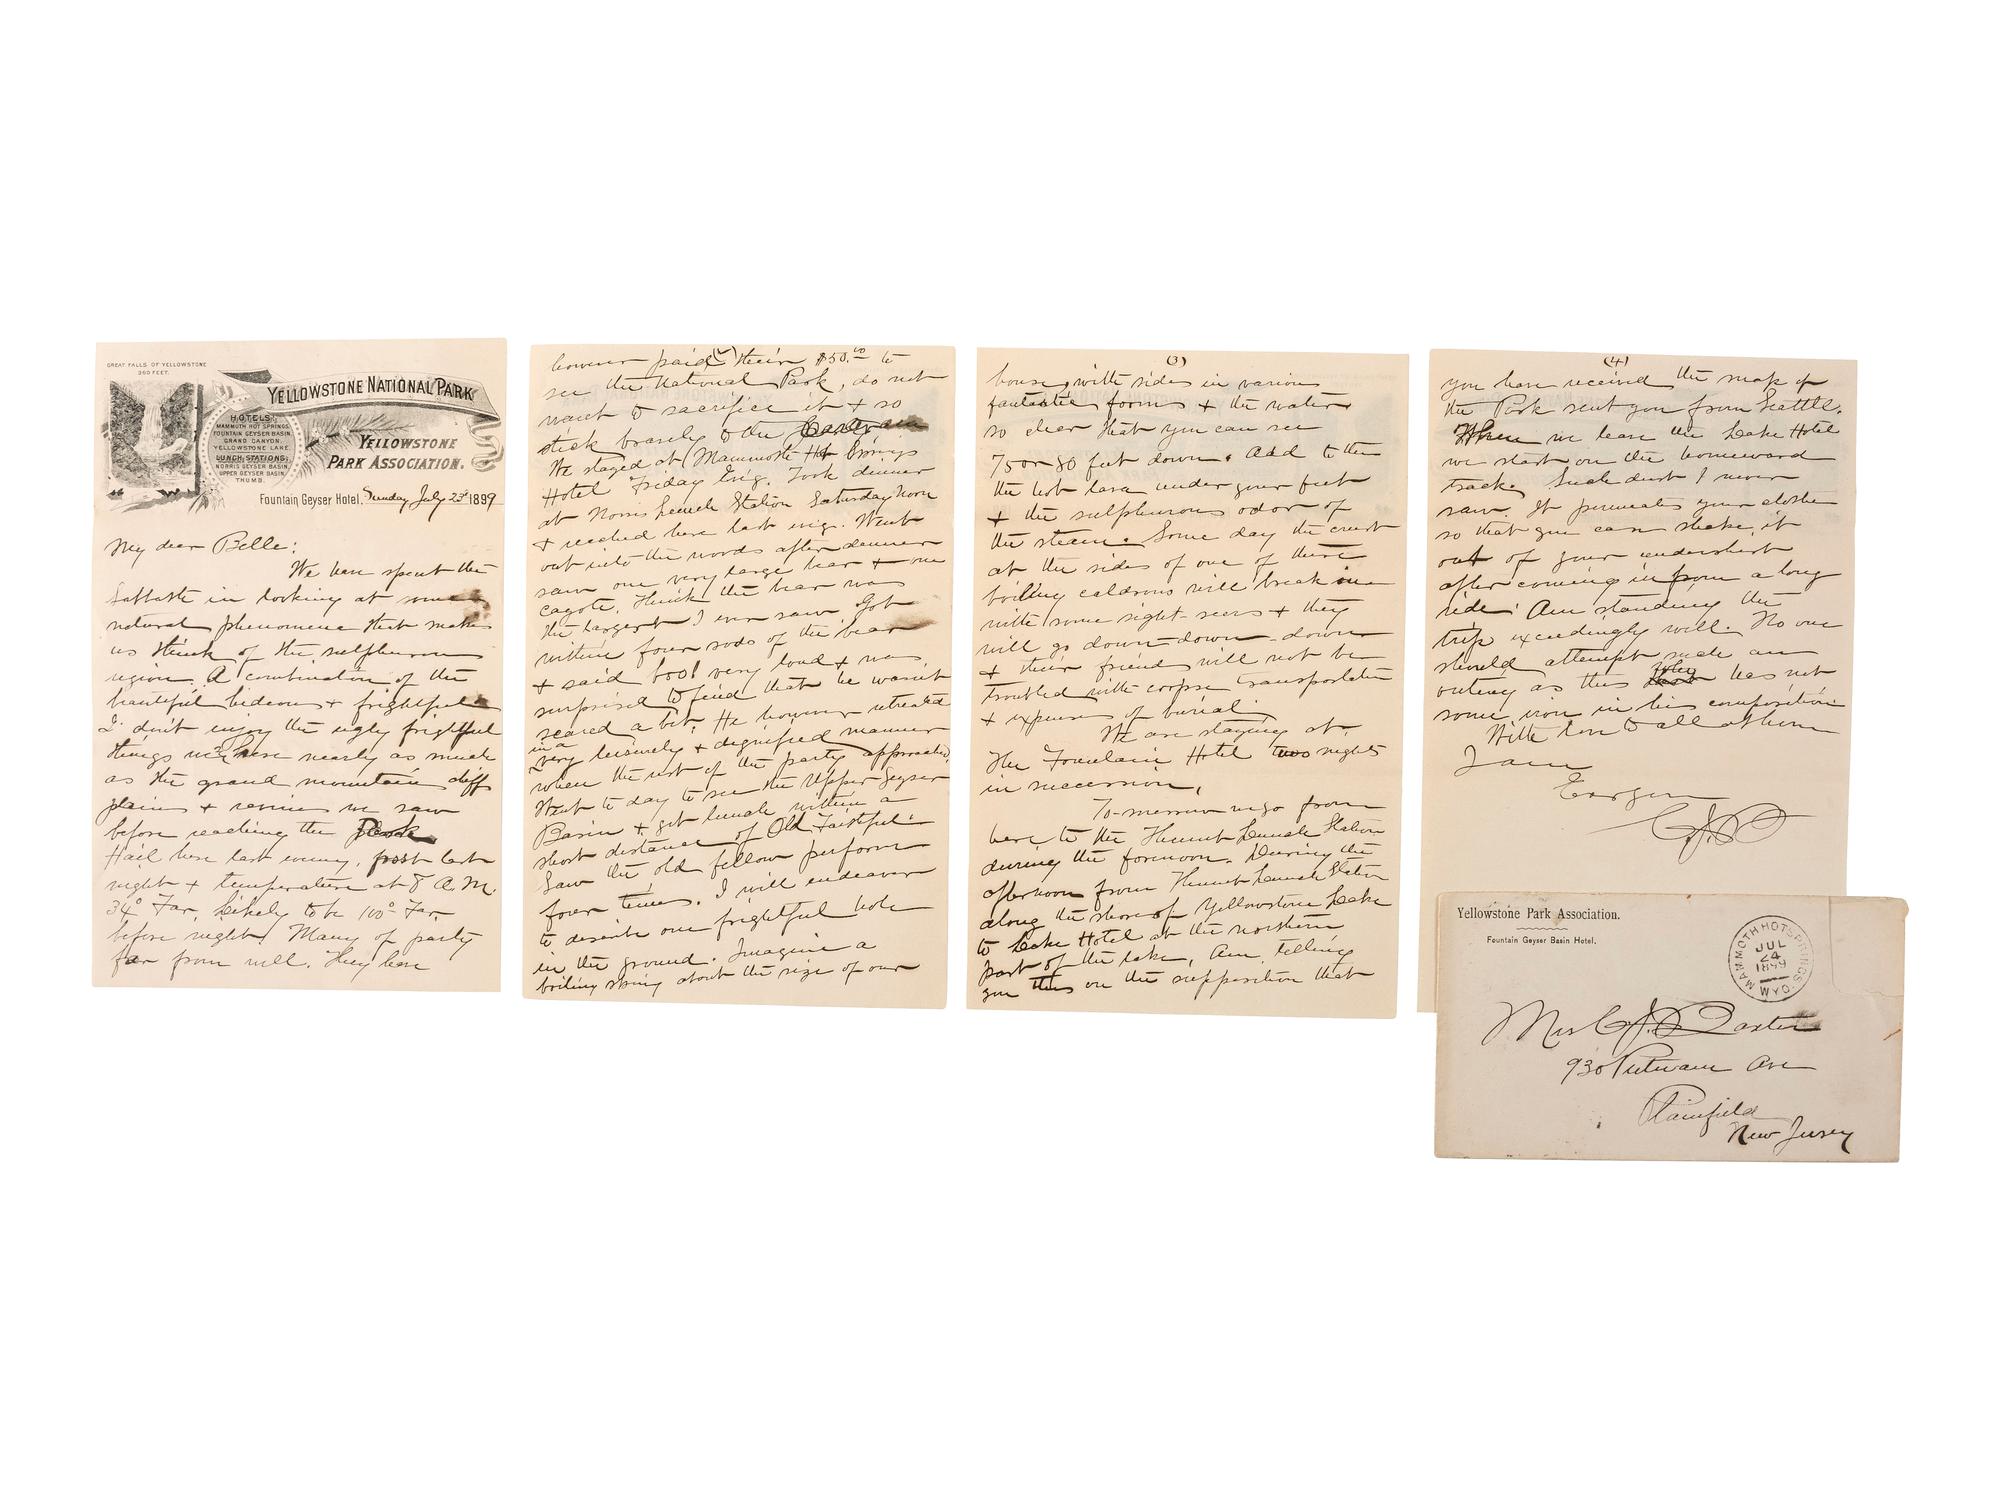 GREAT FALLS OF YELLOWSTONE
360 FEET.
YELLOWSTONE NATIONAL PARK
HOTELS:
MAMMOTH HOT SPRINGS.
FOUNTAIN GEYSER BASIN.
GRAND CANYON.
YELLOWSTONE LAKE.
LUNCH STATIONS:
NORRIS GEYSER BASIN.
UPPER GEYSER BASIN.
THUMB.
YELLOWSTONE
PARK ASSOCIATION.
Fountain Geyser Hotel, Sunday July 23d 1899
My dear Belle:
We have spent the
Sabbath in looking at some
natural phenomena that make
us think of the sulphurous
region. A combination of the
beautiful hideous + frightful
I don't enjoy the ugly frightful
things here nearly as much
as the grand mountain cliffs
plains + ravines we saw
before reaching the Park
Hail here last evening, frost last
night + temperature at 8 A.M.
34° Far. Likely to be 100° Far.
before night. Many of party
far from well. They have
(2)
however paid their $50.00 to
see the National Park, do not
want to sacrifice it + so
stick bravely to the Caravan
We staged at Mammoth Hot Springs
Hotel Friday Evig. Took dinner
at Norris Lunch Station Saturday Noon
+ reached here last evig. Went
out into the woods after dinner
saw one very large bear + one
cayote. Think the bear was
the largest I ever saw. Got
within four rods of the bear
+ said boo! very loud + was
surprised to find that he wasn't
scared a bit. He however retreated
in a
very leisurely + dignified manner
when the rest of the party approached.
Went to day to see the Upper Geyser
Basin + get lunch within a
short distance of "Old Faithful"
Saw the old fellow perform
four times. I will endeavor
to describe one frightful hole
in the ground. Imagine a
boiling spring about the size of our
(3)
house, with sides in various
fantastic forms + the water
so clear that you can see
75 or 80 feet down. Add to this
the hot lava under your feet
+ the sulphurous odor of
the steam. Some day the crust
at the sides of one of these
boiling caldrons will break in
with some sight-seers + they
will go down-down-down
+ their friends will not be
troubled with corpse transportation
+ expenses of burial.
We are staying at
The Fountain Hotel two nights
in succession.
To-morrow we go from
here to the Thumb Lunch Station
during the forenoon. During the
afternoon from Thumb Lunch Station
along the shore of Yellowstone Lake
to Lake Hotel at the northern
part of the lake. Am telling
you this on the supposition that
(4)
you have received the map of
the Park sent you from Seattle.
When we leave the Lake Hotel
we start on the homeward
track. Such dust I never
saw. It permeates your clothes
so that you can shake it
out of your undershirt
after coming in from a long
ride. Am standing the
trip exceedingly well. No one
should attempt such an
outing as this who has not
some iron in his composition
With love to all at home
I am
C.J.B
Yellowstone Park Association.
Fountain Geyser Basin Hotel.
MAMMOTH HOT SPRINGS
JUL
24
1899
WYO.
Mrs C.J.B Baxter
930 Putnam Ave
Plainfield
New Jersey